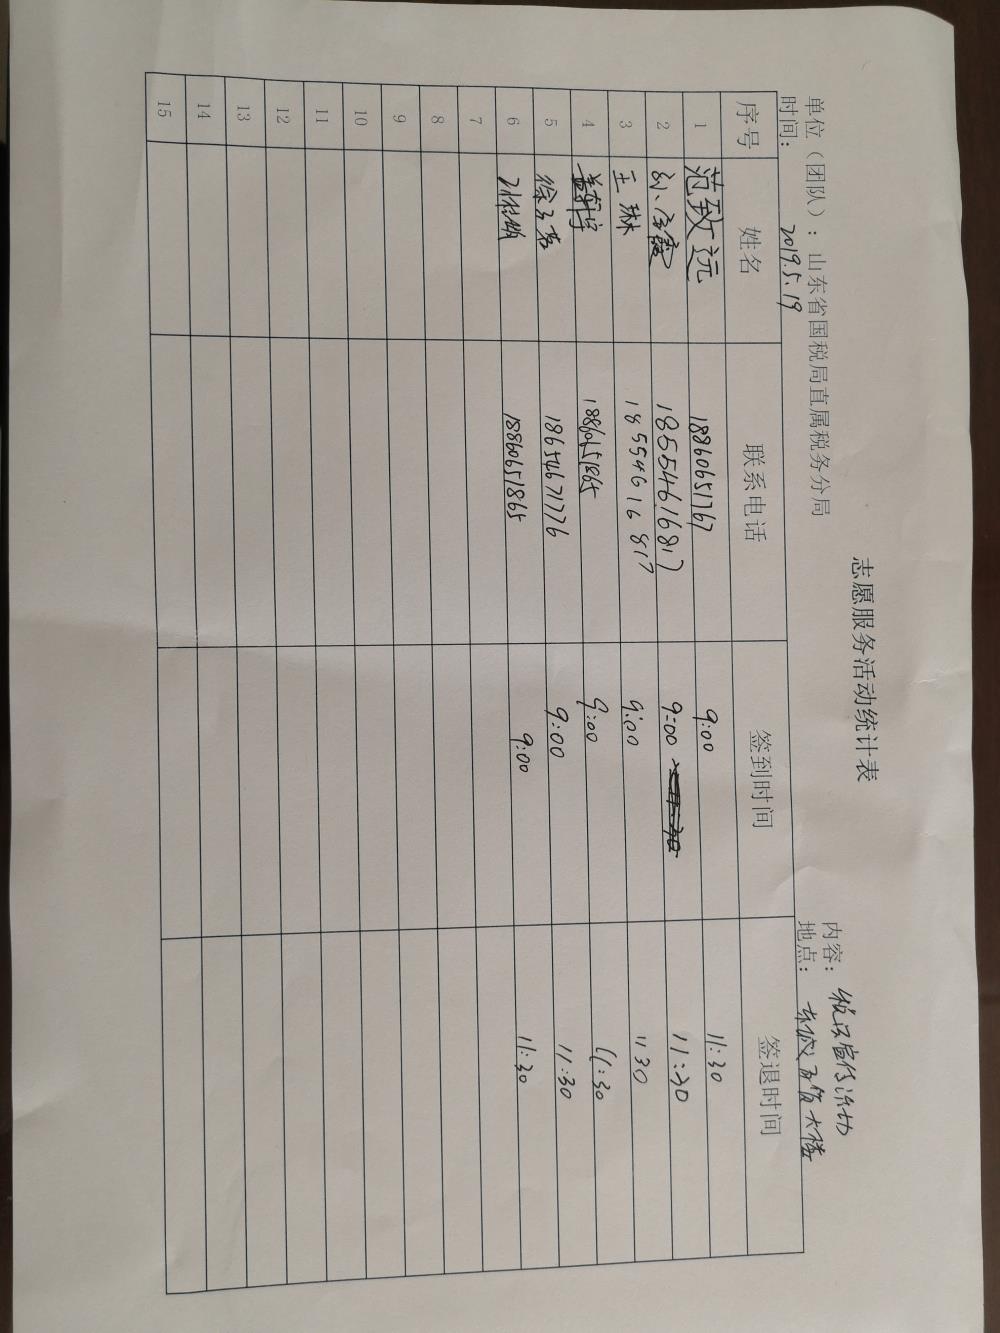 志愿服务活动统计表
单位（团队）：山东省国税局直属税务分局 内容：税法宣传活动
时间：2019.5.19 地点：大楼
序号 姓名 联系电话 签到时间 签退时间
1 范致远 18860651767 9:00 11:30
2 18554616817 9:00 11:30
3 王琳 18554616817 9:00 1130
4 18860651865 9:00 11:30
5 18654671776 9:00 11:30
6 18860651865 9:00 11:30
7
8
9
10
11
12
13
14
15